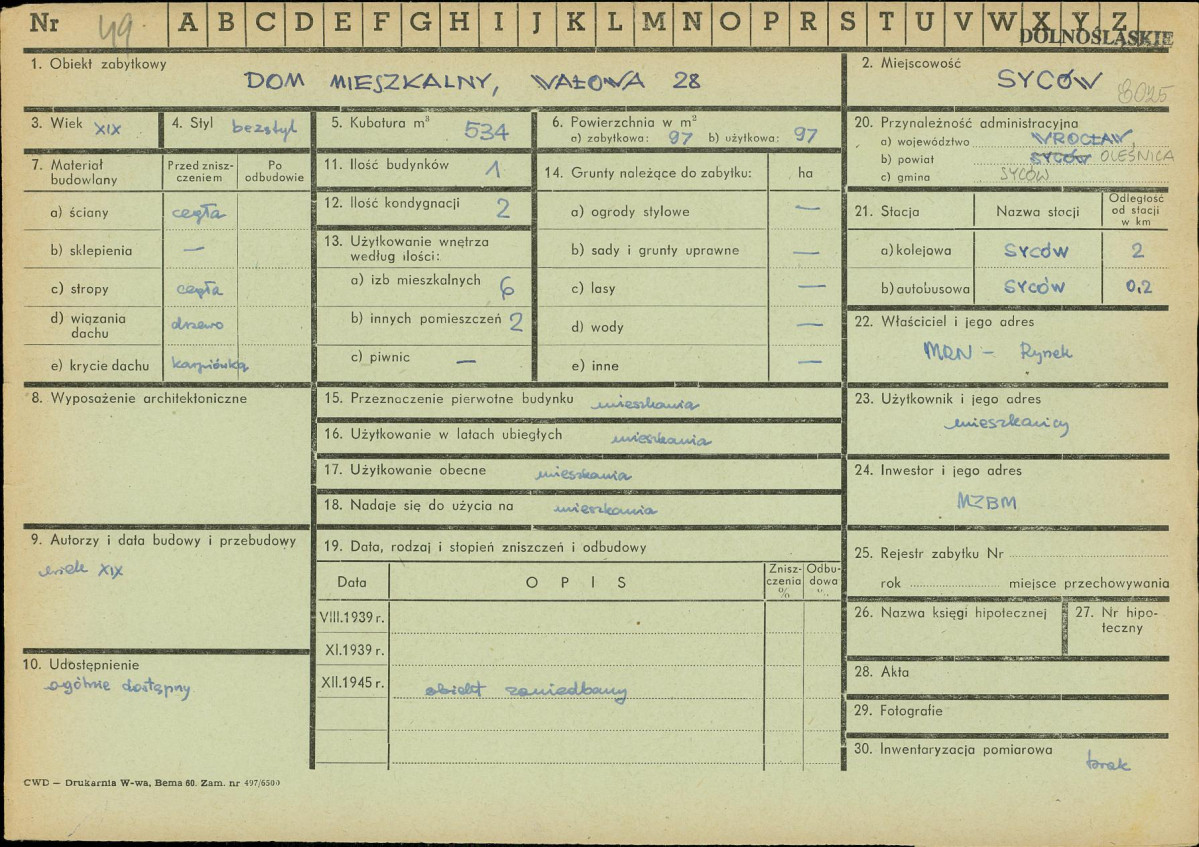 Nr 49 A B C D E F G H I J K L M N O P R S T U V W X Y Z
DOLNOŚLĄSKIE
1. Obiekt zabytkowy
DOM MIESZKALNY, WAŁOWA 28
2. Miejscowość
SYCÓW
8025
3. Wiek XIX
4. Styl bezstyl
5. Kubatura m³ 534
6. Powierzchnia w m²
a) zabytkowa: 97 b) użytkowa: 97
7. Materiał budowlany
Przed zniszczeniem
Po odbudowie
a) ściany cegła
b) sklepienia —
c) stropy cegła
d) wiązania dachu drzewo
e) krycie dachu karpiówka
8. Wyposażenie architektoniczne
9. Autorzy i data budowy i przebudowy
wiek XIX
10. Udostępnienie
ogólnie dostępny
11. Ilość budynków 1
12. Ilość kondygnacji 2
13. Użytkowanie wnętrza
według ilości:
a) izb mieszkalnych 6
b) innych pomieszczeń 2
c) piwnic —
14. Grunty należące do zabytku: ha
a) ogrody stylowe —
b) sady i grunty uprawne —
c) lasy —
d) wody —
e) inne —
15. Przeznaczenie pierwotne budynku mieszkania
16. Użytkowanie w latach ubiegłych mieszkania
17. Użytkowanie obecne mieszkania
18. Nadaje się do użycia na mieszkania
19. Data, rodzaj i stopień zniszczeń i odbudowy
Data
OPIS
Zniszczenia %
Odbudowa %
VIII.1939 r.
XI.1939 r.
XII.1945 r. obiekt zaniedbany
20. Przynależność administracyjna
a) województwo WROCŁAW
b) powiat SYCÓW OLEŚNICA
c) gmina SYCÓW
21. Stacja
Nazwa stacji
Odległość od stacji w km
a) kolejowa SYCÓW 2
b) autobusowa SYCÓW 0,2
22. Właściciel i jego adres
MRN — Rynek
23. Użytkownik i jego adres
mieszkańcy
24. Inwestor i jego adres
MZBM
25. Rejestr zabytku Nr
rok miejsce przechowywania
26. Nazwa księgi hipotecznej
27. Nr hipoteczny
28. Akta
29. Fotografie
30. Inwentaryzacja pomiarowa
brak
CWD — Drukarnia W-wa, Bema 60. Zam. nr 497/6500